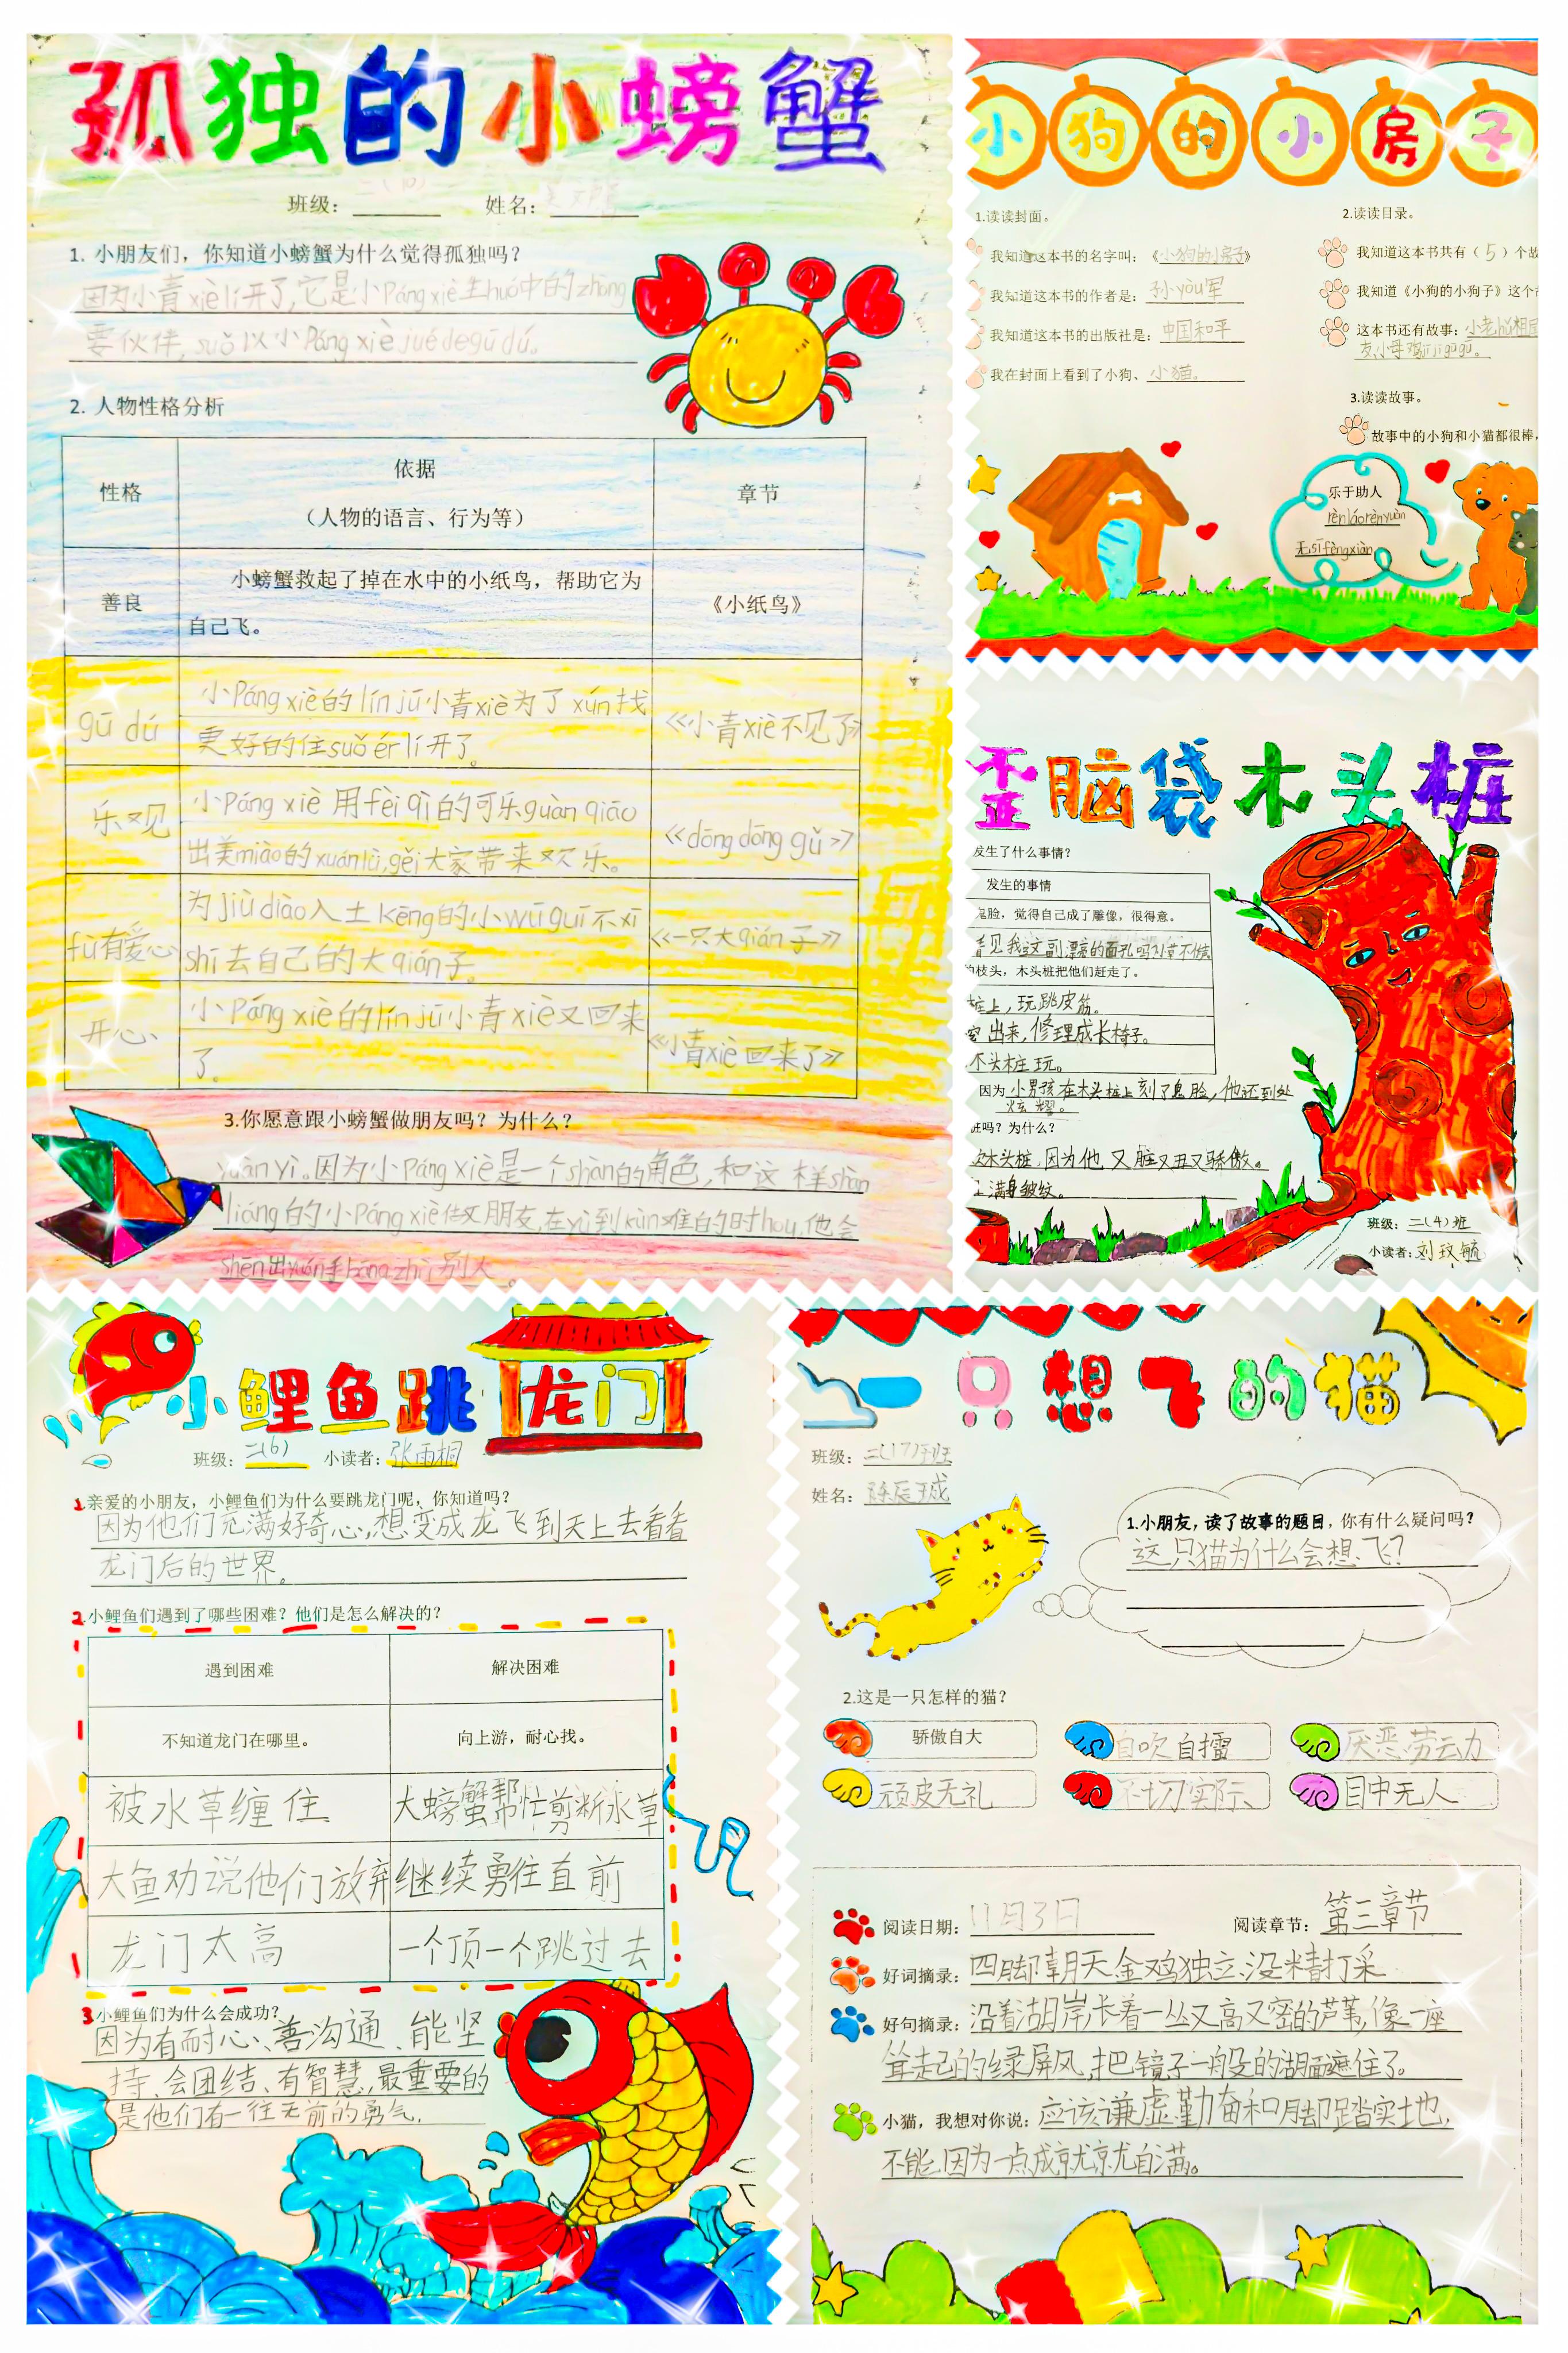 孤独的小螃蟹
班级：二(10) 姓名：
1. 小朋友们，你知道小螃蟹为什么觉得孤独吗？
因为小青xiè lí开了，它是小Páng xiè生huó中的zhòng
要伙伴，suǒ以小Páng xiè jué de gū dú。
2. 人物性格分析
性格 依据 章节
（人物的语言、行为等）
善良 小螃蟹救起了掉在水中的小纸鸟，帮助它为 《小纸鸟》
自己飞。
gū dú 小Páng xiè的lín jū小青xiè为了xún找 《小青xiè不见了》
更好的住suǒ ér lí开了。
乐观 小Páng xiè 用fèi qì的可乐guàn qiāo 《dōng dōng gǔ》
出美miào的xuán lǜ，gěi大家带来欢乐。
fù有爱心 为jiù diào入土kēng的小wū guī不xī 《一只大qián子》
shī去自己的大qián子。
开心 小Páng xiè的lín jū小青xiè又回来 《小青xiè回来了》
了。
3.你愿意跟小螃蟹做朋友吗？为什么？
yuàn yì。因为小Páng xiè是一个shàn的角色，和这样shàn
liáng的小Páng xiè做朋友，在yù到kùn难的时hou，他会
shēn出yuán手bāng zhù别人。
小狗的小房子
1.读读封面。
我知道这本书的名字叫：《小狗的小房子》
我知道这本书的作者是：孙yòu军
我知道这本书的出版社是：中国和平
我在封面上看到了小狗、小猫。
2.读读目录。
我知道这本书共有（5）个故
我知道《小狗的小狗子》这个
这本书还有故事：小老hǔ相
友，小母鸡jī jī gū gū。
3.读读故事。
故事中的小狗和小猫都很棒，
乐于助人
rèn láo rèn yuàn
无sī fèng xiàn
歪脑袋木头桩
发生了什么事情？
发生的事情
鬼脸，觉得自己成了雕像，很得意。
看见我这副漂亮的面孔吗
的枝头，木头桩把他们赶走了。
桩上，玩跳皮筋。
出来，修理成长椅子。
木头桩玩。
因为小男孩在木头桩上刻了鬼脸，他还到处
炫耀。
桩吗？为什么？
木头桩，因为他又脏又丑又骄傲。
满身皱纹。
班级：二(4)班
小读者：刘玟毓
小鲤鱼跳龙门
班级：二(6) 小读者：张雨桐
1.亲爱的小朋友，小鲤鱼们为什么要跳龙门呢，你知道吗？
因为他们充满好奇心，想变成龙飞到天上去看看
龙门后的世界。
2.小鲤鱼们遇到了哪些困难？他们是怎么解决的？
遇到困难 解决困难
不知道龙门在哪里。 向上游，耐心找。
被水草缠住 大螃蟹帮忙剪断水草
大鱼劝说他们放弃 继续勇往直前
龙门太高 一个顶一个跳过去
3.小鲤鱼们为什么会成功？
因为有耐心、善沟通、能坚
持、会团结、有智慧，最重要的
是他们有一往无前的勇气。
一只想飞的猫
班级：二(17)班
姓名：陈辰
1.小朋友，读了故事的题目，你有什么疑问吗？
这只猫为什么会想飞？
2.这是一只怎样的猫？
骄傲自大 自吹自擂 厌恶劳动
顽皮无礼 不切实际 目中无人
阅读日期：11月3日 阅读章节：第三章节
好词摘录：四脚朝天 金鸡独立 没精打采
好句摘录：沿着湖岸长着一丛又高又密的芦苇，像一座
耸起的绿屏风，把镜子一般的湖面遮住了。
小猫，我想对你说：应该谦虚勤奋和脚踏实地，
不能因为一点成就就自满。